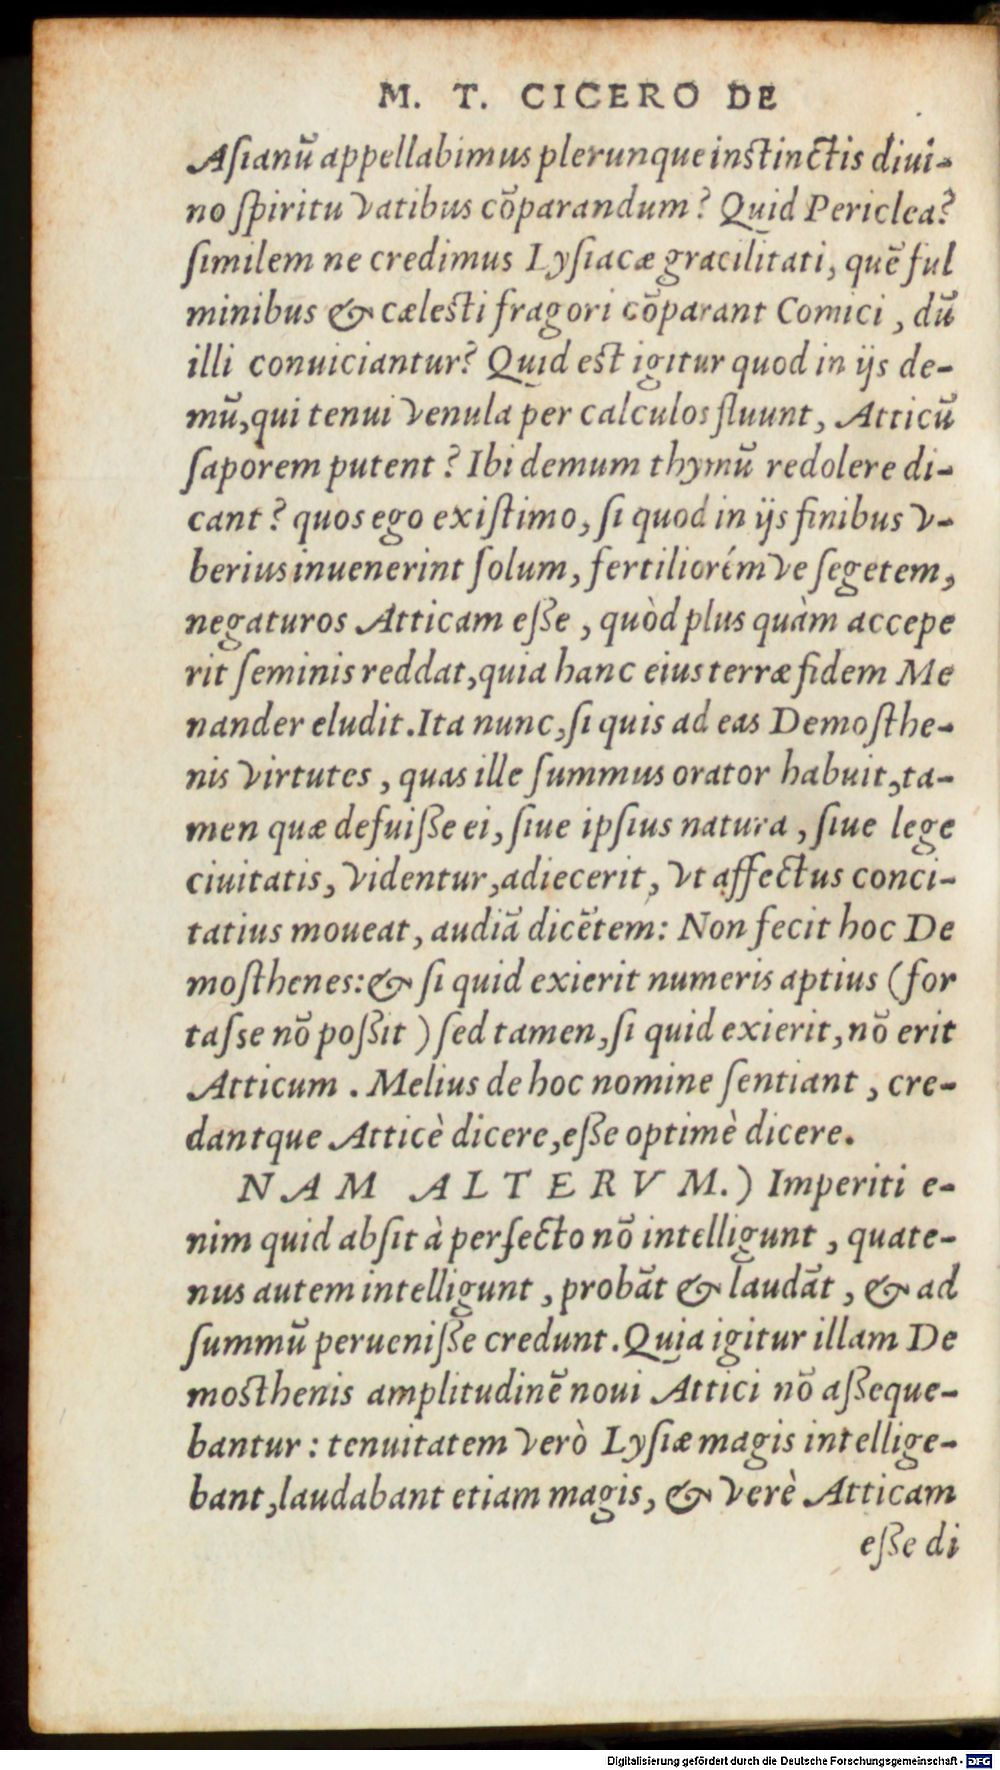 M. T. CICERO DE
Aſianũ appellabimus plerunque inſtinctis diui-
no ſpiritu vatibus cõparandum? Quid Periclea?
ſimilem ne credimus Lyſiacæ gracilitati, quẽ ful
minibus & cæleſti fragori cõparant Comici, dũ
illi conuiciantur? Quid eſt igitur quod in ijs de-
mũ, qui tenui venula per calculos fluunt, Atticũ
ſaporem putent? Ibi demum thymũ redolere di-
cant? quos ego exiſtimo, ſi quod in ijs finibus v-
berius inuenerint ſolum, fertiliorém ve ſegetem,
negaturos Atticam eſſe, quòd plus quàm accepe
rit ſeminis reddat, quia hanc eius terræ fidem Me
nander eludit. Ita nunc, ſi quis ad eas Demoſthe-
nis virtutes, quas ille ſummus orator habuit, ta-
men quæ defuiſſe ei, ſiue ipſius natura, ſiue lege
ciuitatis, videntur, adiecerit, vt affectus conci-
tatius moueat, audiã dicẽtem: Non fecit hoc De
moſthenes: & ſi quid exierit numeris aptius (for
taſse nõ poßit) ſed tamen, ſi quid exierit, nõ erit
Atticum. Melius de hoc nomine ſentiant, cre-
dantque Atticè dicere, eſſe optimè dicere.
NAM ALTERVM.) Imperiti e-
nim quid abſit à perfecto nõ intelligunt, quate-
nus autem intelligunt, probãt & laudãt, & ad
ſummũ perueniſſe credunt. Quia igitur illam De
moſthenis amplitudinẽ noui Attici nõ aſſeque-
bantur: tenuitatem verò Lyſiæ magis intellige-
bant, laudabant etiam magis, & verè Atticam
eſſe di
Digitalisierung gefördert durch die Deutsche Forschungsgemeinschaft - DFG